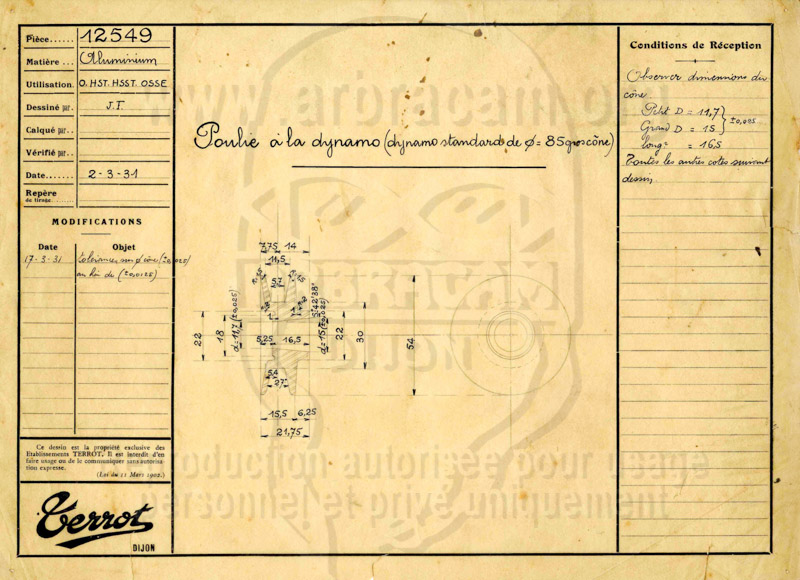 Pièce...... 12549
Matière ... Aluminium
Utilisation. O. HST. HSST. OSSE
Dessiné par. J.T.
Calqué par..
Vérifié par..
Date....... 2-3-31
Repère
de tirage.
MODIFICATIONS
Date Objet
17-3-31 tolérances sur ø cône (±0,025)
au lieu de (±0,0125)
Ce dessin est la propriété exclusive des
Etablissements TERROT. Il est interdit d'en
faire usage ou de le communiquer sans autorisa-
tion expresse.
(Loi du 11 Mars 1902.)
Terrot
DIJON
www.arbracam.org
Poulie à la dynamo (dynamo standard de ø = 85 gros cône)
7,75 14
11,5
5,7
5°42'38"
22
18
d=11,7 (±0,025)
5,25 16,5
d=15 (±0,025)
22
30
54
5,4
27°
15,5 6,25
21,75
ARBRACAM
DIJON
Reproduction autorisée pour usage
personnel et privé uniquement
Conditions de Réception
Observer dimensions du
cône
Petit D = 11,7
Grand D = 15
±0,025
longr = 16,5
Toutes les autres cotes suivant
dessin.